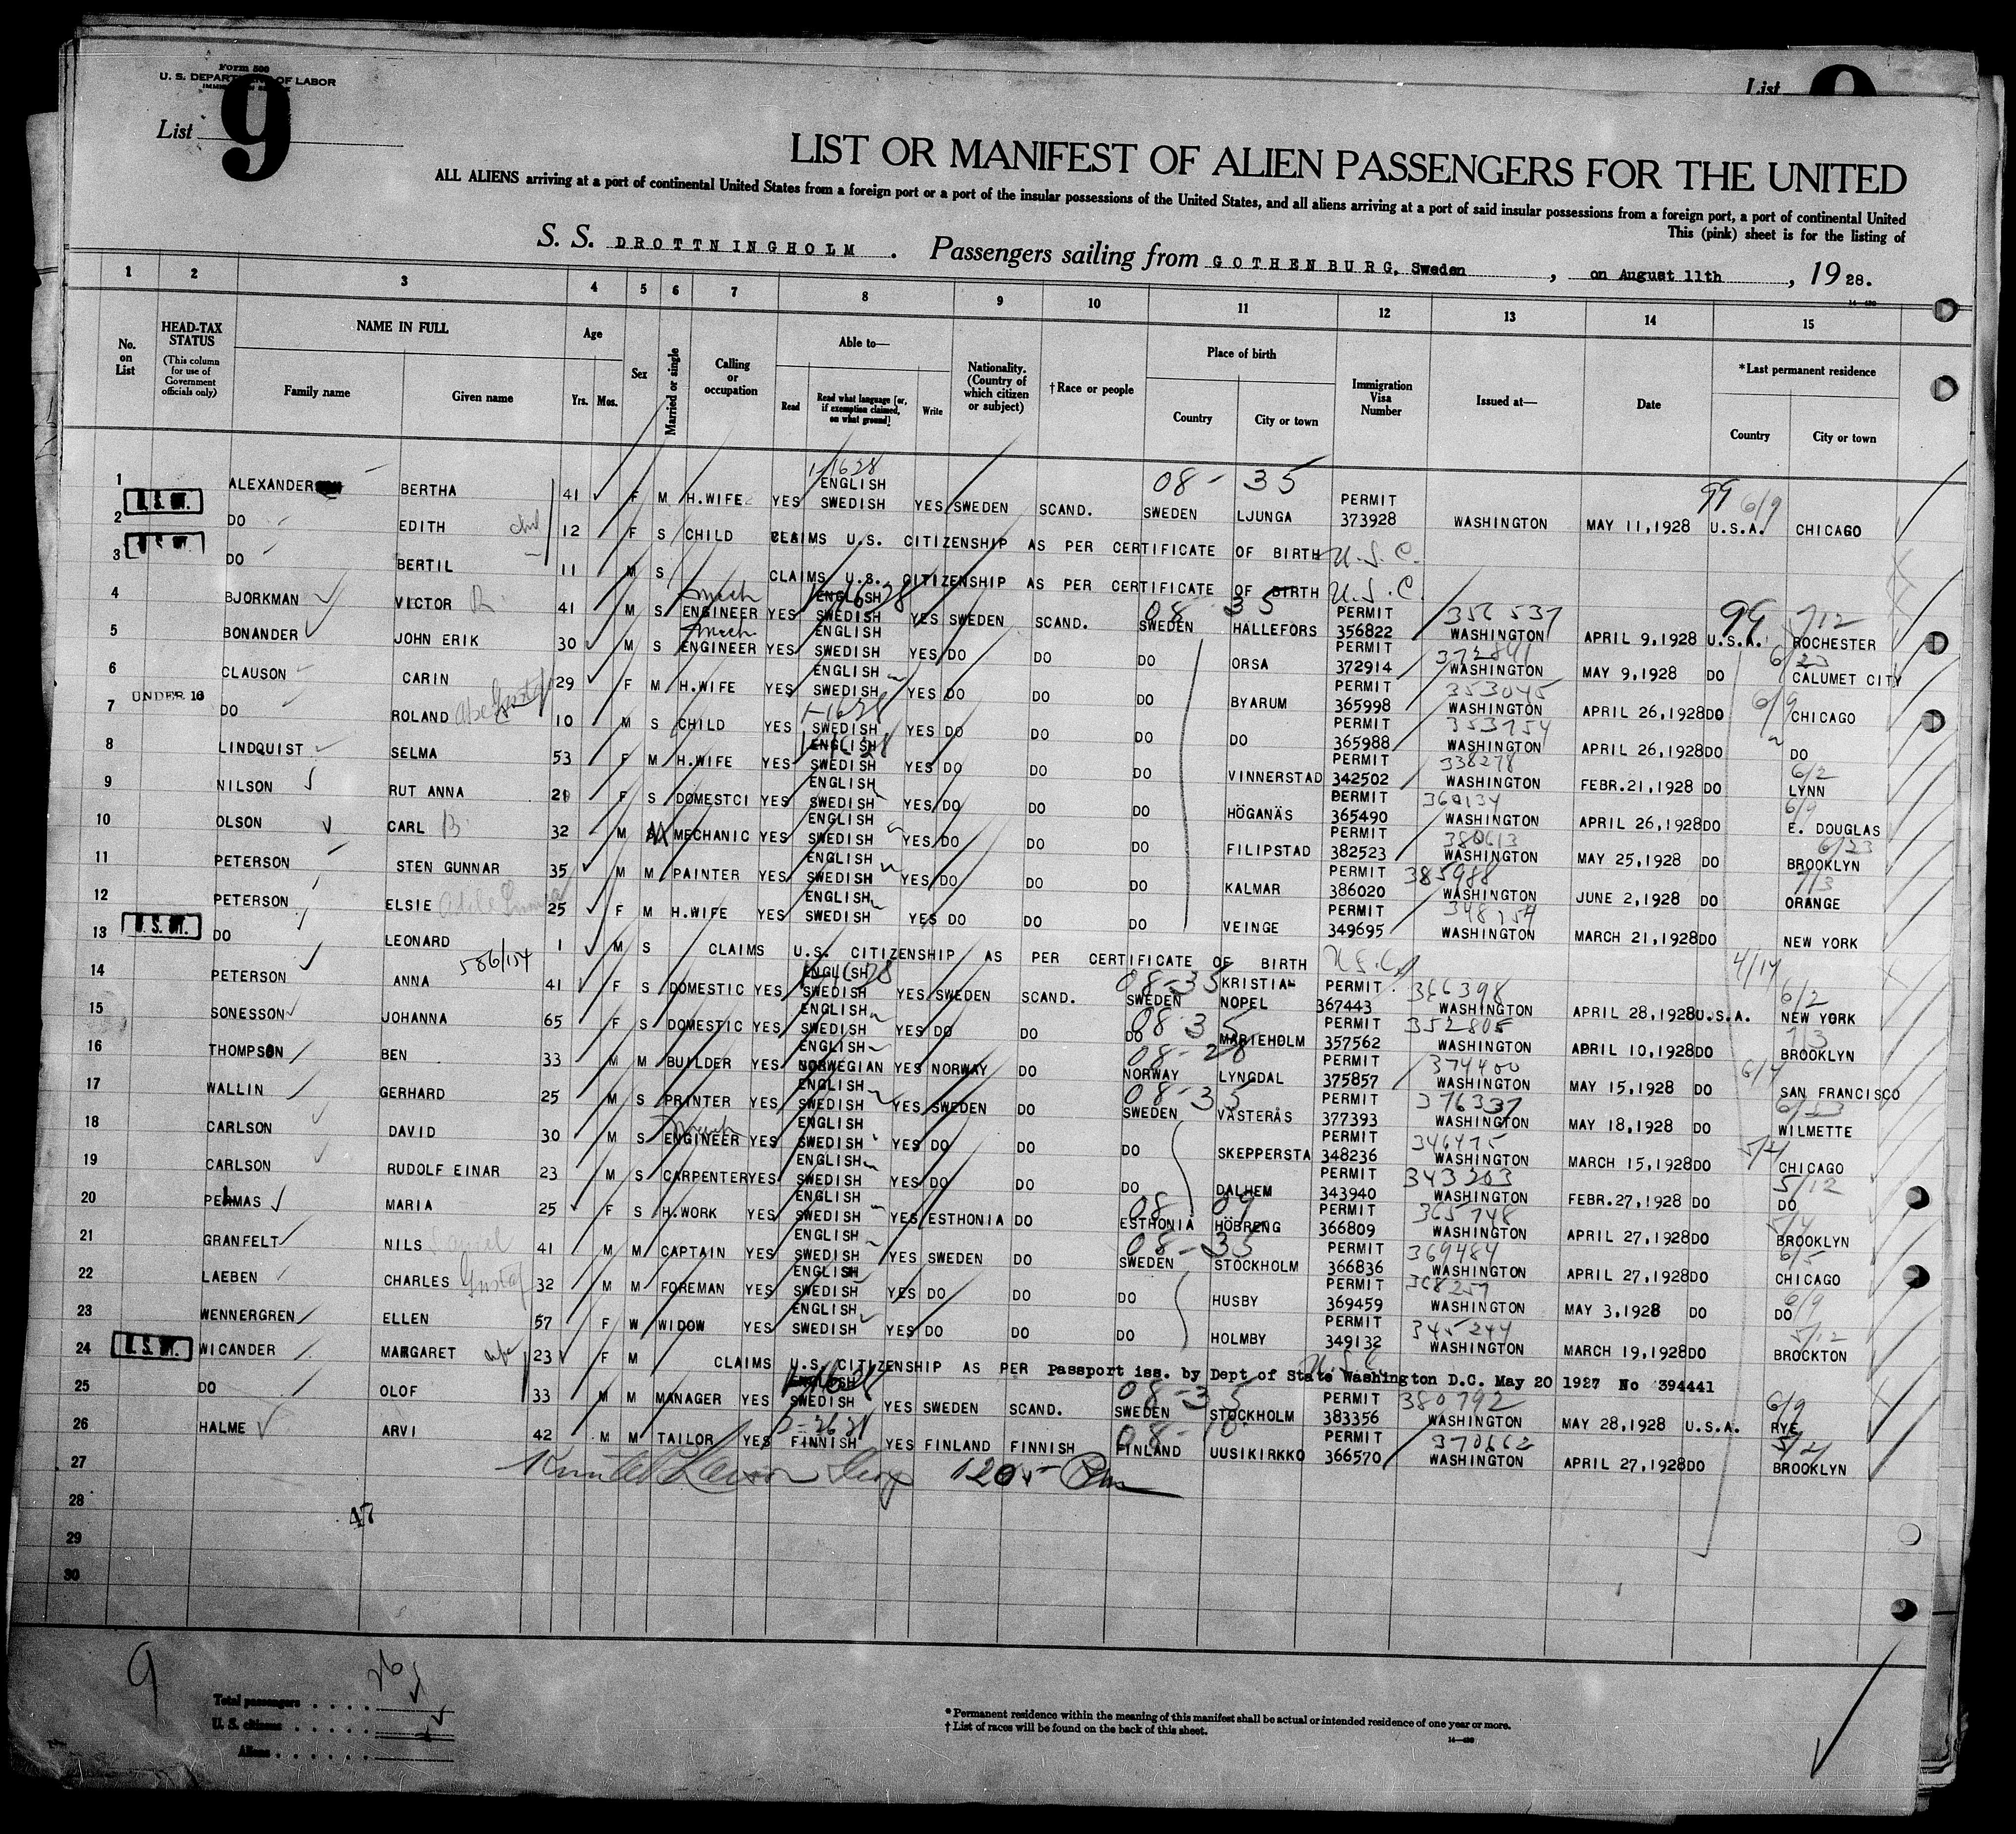 Form 500
U. S. DEPARTMENT OF LABOR
List 9
List 9
LIST OR MANIFEST OF ALIEN PASSENGERS FOR THE UNITED
ALL ALIENS arriving at a port of continental United States from a foreign port or a port of the insular possessions of the United States, and all aliens arriving at a port of said insular possessions from a foreign port, a port of continental United
This (pink) sheet is for the listing of
S. S. DROTTNINGHOLM. Passengers sailing from GOTHENBURG, Sweden, on August 11th, 1928.
1 2 3 4 5 6 7 8 9 10 11 12 13 14 15
No. on List HEAD-TAX STATUS (This column for use of Government officials only) NAME IN FULL Family name Given name Age Yrs. Mos. Sex Married or single Calling or occupation Able to— Read Read what language [or, if exemption claimed, on what ground] Write Nationality. (Country of which citizen or subject) †Race or people Place of birth Country City or town Immigration Visa Number Issued at— Date *Last permanent residence Country City or town
1-1628 08-35 99 6/9
1 U.S. ALEXANDER BERTHA 41 F M H.WIFE YES ENGLISH SWEDISH YES SWEDEN SCAND. SWEDEN LJUNGA PERMIT 373928 WASHINGTON MAY 11,1928 U.S.A. CHICAGO
2 U.S. DO EDITH 12 F S CHILD CLAIMS U.S. CITIZENSHIP AS PER CERTIFICATE OF BIRTH U.S.C.
3 DO BERTIL 11 M S CLAIMS U.S. CITIZENSHIP AS PER CERTIFICATE OF BIRTH U.S.C.
4 BJORKMAN VICTOR R 41 M S mech ENGINEER YES ENGLISH SWEDISH YES SWEDEN SCAND. 08-35 SWEDEN HALLEFORS PERMIT 356822 356537 WASHINGTON APRIL 9,1928 U.S.A. 99 7/12 ROCHESTER
5 BONANDER JOHN ERIK 30 M S mech ENGINEER YES ENGLISH SWEDISH YES DO DO DO ORSA PERMIT 372914 372841 WASHINGTON MAY 9,1928 DO 6/23 CALUMET CITY
6 CLAUSON CARIN 29 F M H.WIFE YES ENGLISH SWEDISH YES DO DO DO BYARUM PERMIT 365998 353045 WASHINGTON APRIL 26,1928 DO 6/9 CHICAGO
UNDER 16
7 DO ROLAND 10 M S CHILD YES 1-1628 SWEDISH YES DO DO DO DO PERMIT 365988 353754 WASHINGTON APRIL 26,1928 DO DO
8 LINDQUIST SELMA 53 F M H.WIFE YES ENGLISH SWEDISH YES DO DO DO VINNERSTAD PERMIT 342502 338278 WASHINGTON FEBR.21,1928 DO 6/2 LYNN
9 NILSON RUT ANNA F S DOMESTCI YES ENGLISH SWEDISH YES DO DO DO HÖGANÄS PERMIT 365490 360134 WASHINGTON APRIL 26,1928 DO 6/9 E. DOUGLAS
10 OLSON CARL B 32 M M MECHANIC YES ENGLISH SWEDISH YES DO DO DO FILIPSTAD PERMIT 382523 380613 WASHINGTON MAY 25,1928 DO 6/23 BROOKLYN
11 PETERSON STEN GUNNAR 35 M M PAINTER YES ENGLISH SWEDISH YES DO DO DO KALMAR PERMIT 386020 385988 WASHINGTON JUNE 2,1928 DO 7/3 ORANGE
12 PETERSON ELSIE 25 F M H.WIFE YES ENGLISH SWEDISH YES DO DO DO VEINGE PERMIT 349695 348754 WASHINGTON MARCH 21,1928 DO NEW YORK
13 U.S. DO LEONARD 1 M S CLAIMS U.S. CITIZENSHIP AS PER CERTIFICATE OF BIRTH 4/14
14 PETERSON ANNA 586/154 41 F S DOMESTIC YES ENGLISH SWEDISH YES SWEDEN SCAND. 08-35 SWEDEN KRISTIANOPEL PERMIT 367443 366398 WASHINGTON APRIL 28,1928 U.S.A. 6/2 NEW YORK
15 SONESSON JOHANNA 65 F S DOMESTIC YES ENGLISH SWEDISH YES DO DO 08-35 DO MARIEHOLM PERMIT 357562 352805 WASHINGTON APRIL 10,1928 DO 7/3 BROOKLYN
16 THOMPSON BEN 33 M M BUILDER YES ENGLISH NORWEGIAN YES NORWAY DO 08-28 NORWAY LYNGDAL PERMIT 375857 374400 WASHINGTON MAY 15,1928 DO 6/4 SAN FRANCISCO
17 WALLIN GERHARD 25 M S PRINTER YES ENGLISH SWEDISH YES SWEDEN DO 08-35 SWEDEN VÄSTERÅS PERMIT 377393 376337 WASHINGTON MAY 18,1928 DO 6/23 WILMETTE
18 CARLSON DAVID 30 M S mech ENGINEER YES ENGLISH SWEDISH YES DO DO DO SKEPPERSTA PERMIT 348236 346475 WASHINGTON MARCH 15,1928 DO 5/4 CHICAGO
19 CARLSON RUDOLF EINAR 23 M S CARPENTER YES ENGLISH SWEDISH YES DO DO DO DALHEM PERMIT 343940 343203 WASHINGTON FEBR.27,1928 DO 5/12 DO
20 PEHMAS MARIA 25 F S H.WORK YES ENGLISH SWEDISH YES ESTHONIA DO 08 09 ESTHONIA HÖBRENG PERMIT 366809 365748 WASHINGTON APRIL 27,1928 DO 5/4 BROOKLYN
21 GRANFELT NILS 41 M M CAPTAIN YES ENGLISH SWEDISH YES SWEDEN DO 08-35 SWEDEN STOCKHOLM PERMIT 366836 369484 WASHINGTON APRIL 27,1928 DO 6/5 CHICAGO
22 LAEBEN CHARLES Gustaf 32 M M FOREMAN YES ENGLISH SWEDISH YES DO DO DO HUSBY PERMIT 369459 368259 WASHINGTON MAY 3,1928 DO 6/9 DO
23 WENNERGREN ELLEN 57 F W WIDOW YES ENGLISH SWEDISH YES DO DO DO HOLMBY PERMIT 349132 345244 WASHINGTON MARCH 19,1928 DO 5/12 BROCKTON
24 U.S. WICANDER MARGARET wife 23 F M CLAIMS U.S. CITIZENSHIP AS PER Passport iss. by Dept of State Washington D.C. May 20 1927 No 394441
25 DO OLOF 33 M M MANAGER YES ENGLISH SWEDISH YES SWEDEN SCAND. 08-35 SWEDEN STOCKHOLM PERMIT 383356 380792 WASHINGTON MAY 28,1928 U.S.A. 6/9 RYE
26 HALME ARVI 42 M M TAILOR YES FINNISH YES FINLAND FINNISH 08-10 FINLAND UUSIKIRKKO PERMIT 366570 370662 WASHINGTON APRIL 27,1928 DO 5/4 BROOKLYN
27
28
47
29
30
9
26
Total passengers
U. S. citizens
Aliens
* Permanent residence within the meaning of this manifest shall be actual or intended residence of one year or more.
† List of races will be found on the back of this sheet.